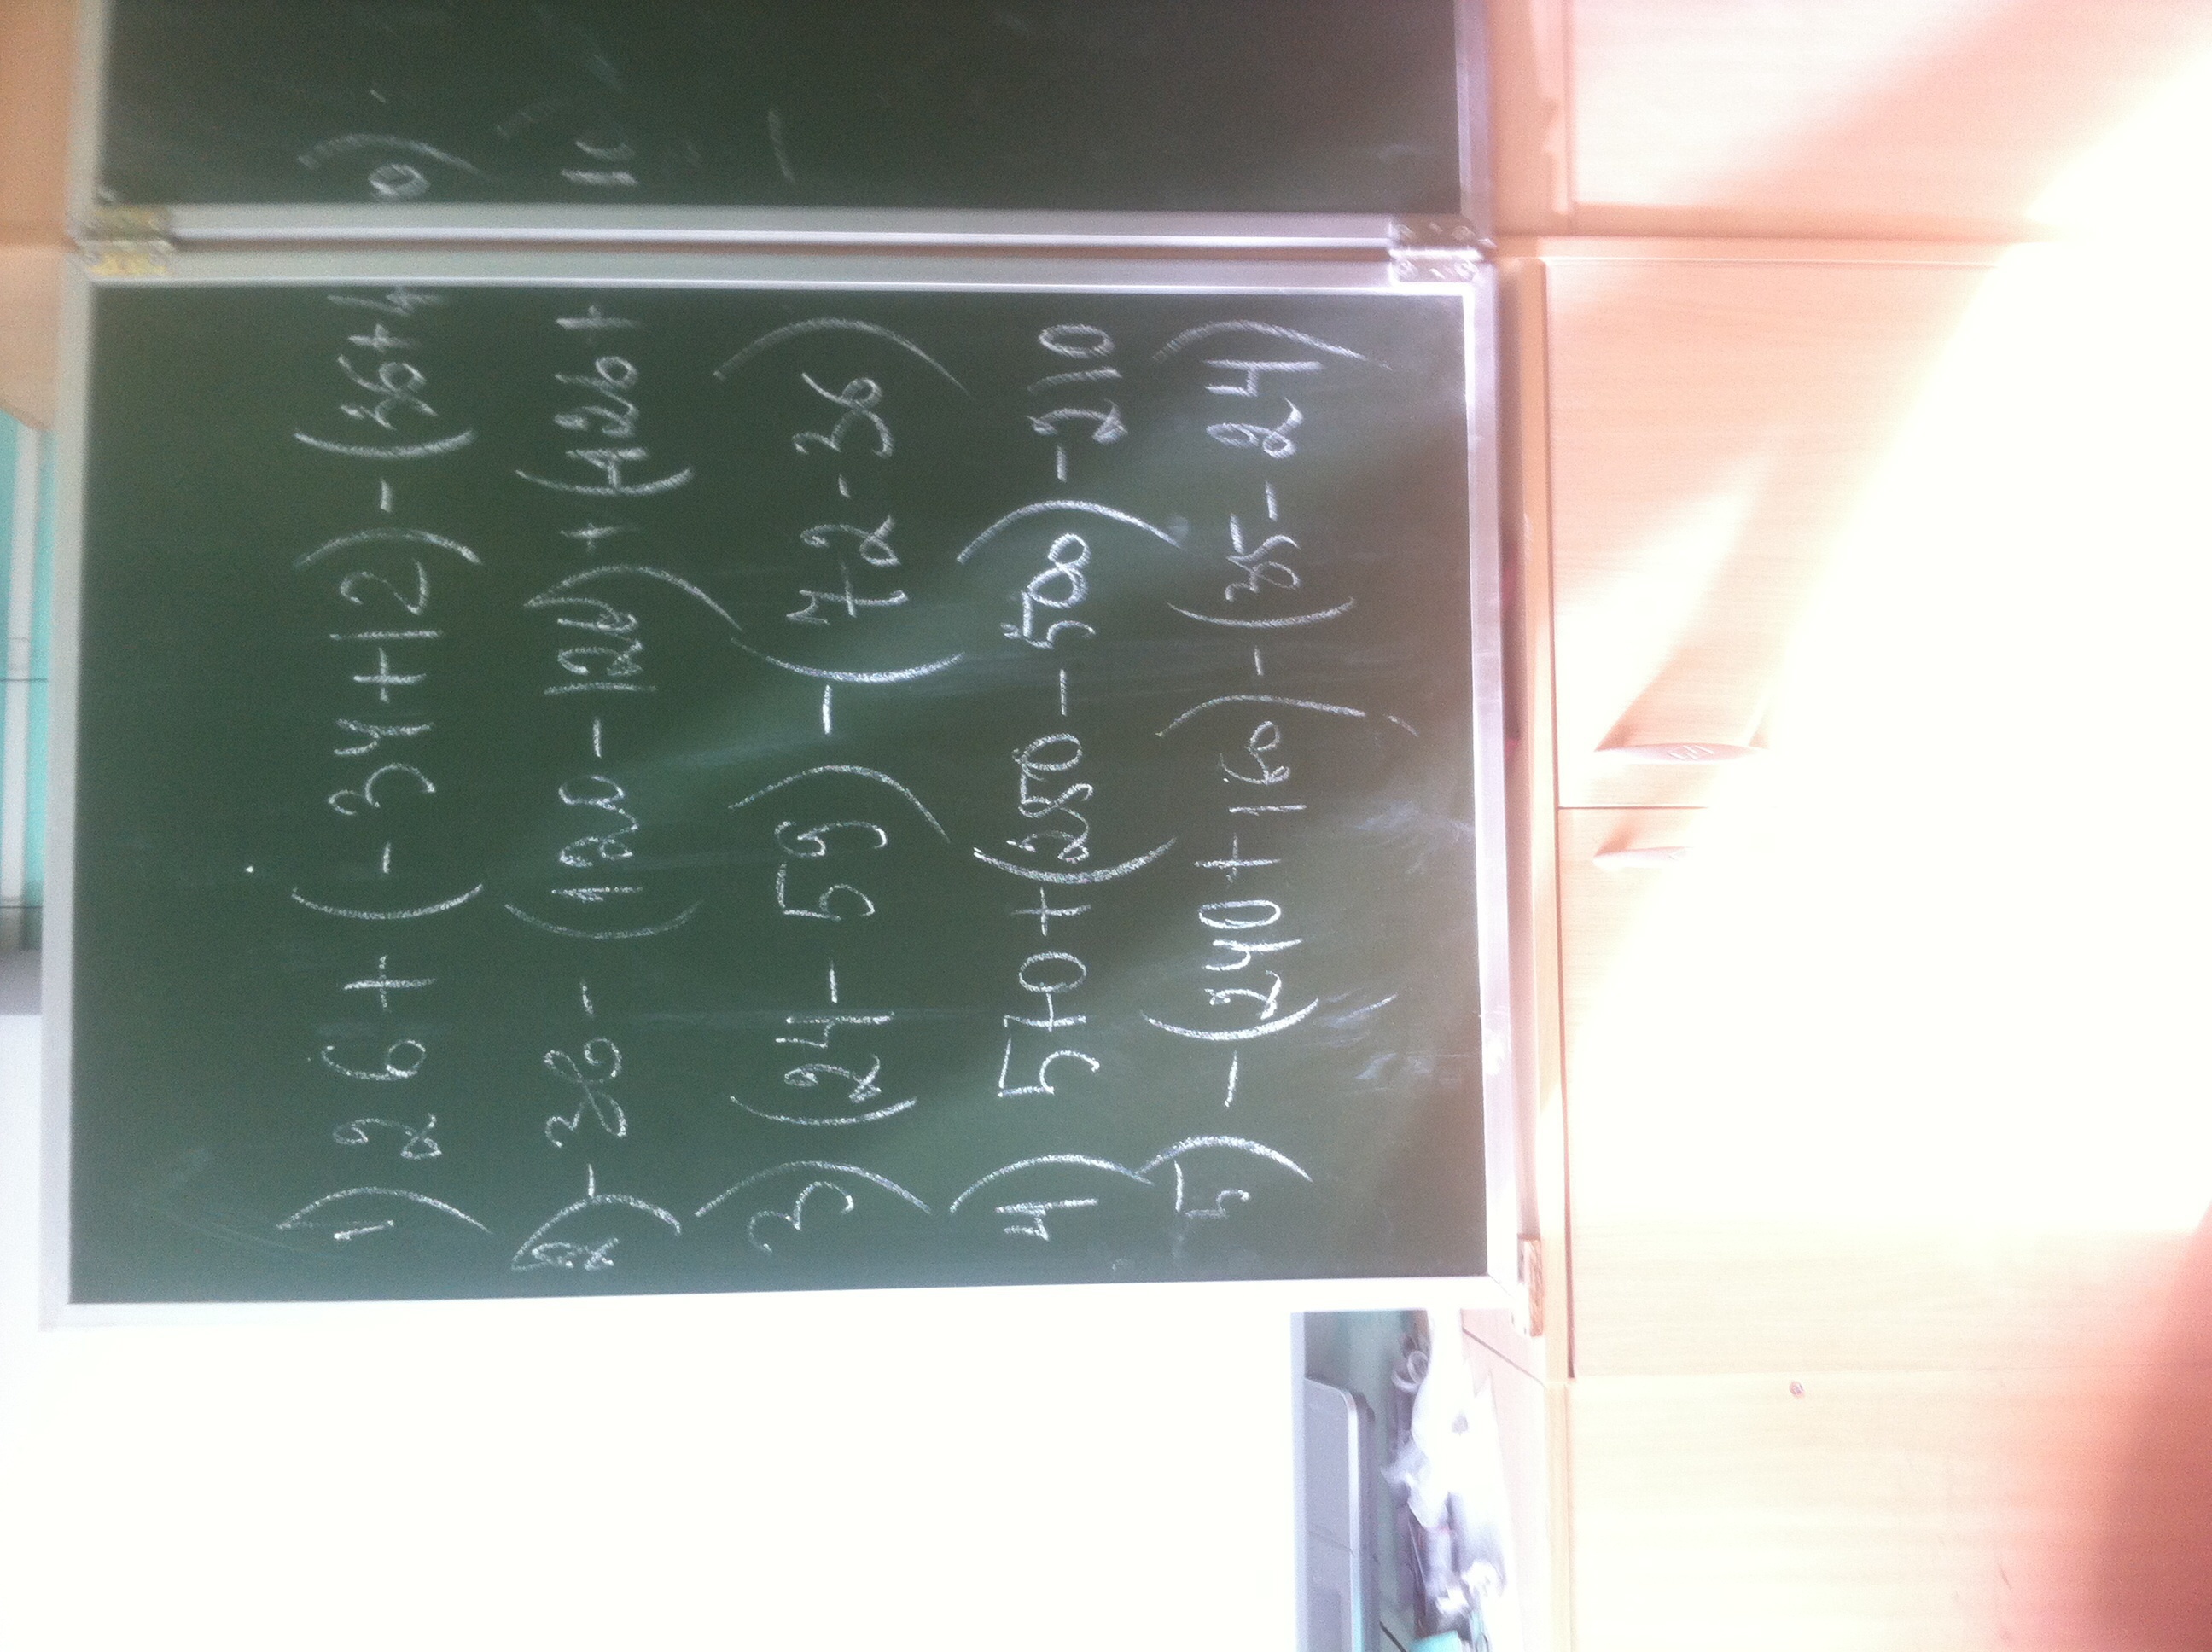 1) 26+(-34+12)-(36+40)
2) -38-(120-126)+(126+10
3) (24-59)-(72-36)
4) 570+(250-500)-210
5) -(240+160)-(35-24)